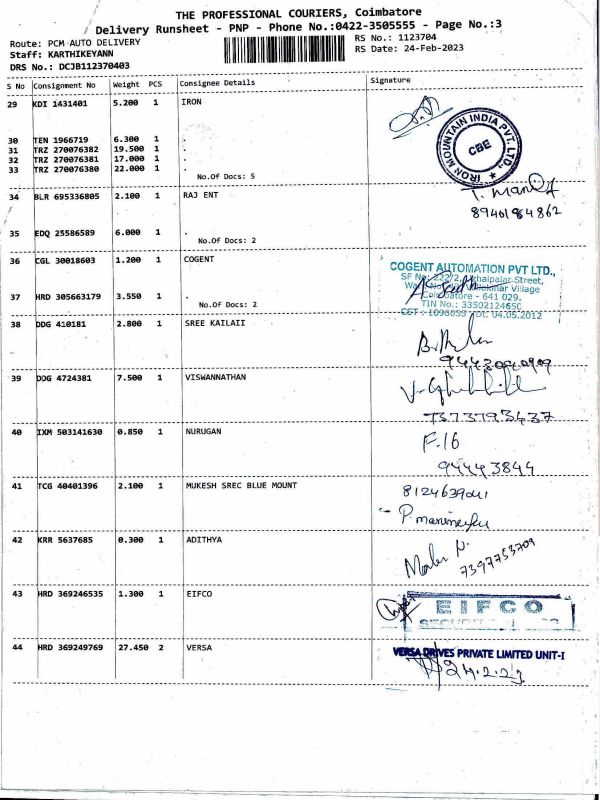 THE PROFESSIONAL COURIERS, Coimbatore
Delivery Runsheet - PNP - Phone No.:0422-3505555 - Page No.:3
Route: PCM AUTO DELIVERY
RS No.: 1123704
Staff: KARTHIKEYANN
RS Date: 24-Feb-2023
DRS No.: DCJB112370403
S No Consignment No Weight PCS Consignee Details Signature
29 KDI 1431401 5.200 1 IRON
IRON MOUNTAIN INDIA PVT. LTD.,
CBE
30 TEN 1966719 6.300 1 .
31 TRZ 270076382 19.500 1 .
32 TRZ 270076381 17.000 1 .
33 TRZ 270076380 22.000 1 .
No.Of Docs: 5
34 BLR 695336805 2.100 1 RAJ ENT
8940184862
35 EDQ 25586589 6.000 1 .
No.Of Docs: 2
36 CGL 30018603 1.200 1 COGENT
COGENT AUTOMATION PVT LTD.,
SF No: 222/2, Street,
Village
Coimbatore - 641 029.
37 HRD 305663179 3.550 1 .
TIN No.: 33502124650
No.Of Docs: 2
DT. 04.05.2012
38 DDG 410181 2.800 1 SREE KAILAII
39 DDG 4724381 7.500 1 VISWANNATHAN
7373793437
40 IXM 503141630 0.850 1 NURUGAN
F.16
94443844
41 TCG 40401396 2.100 1 MUKESH SREC BLUE MOUNT
8124639041
42 KRR 5637685 0.300 1 ADITHYA
7397753709
43 HRD 369246535 1.300 1 EIFCO
EIFCO
44 HRD 369249769 27.450 2 VERSA
VERSA DRIVES PRIVATE LIMITED UNIT-I
24.2.23